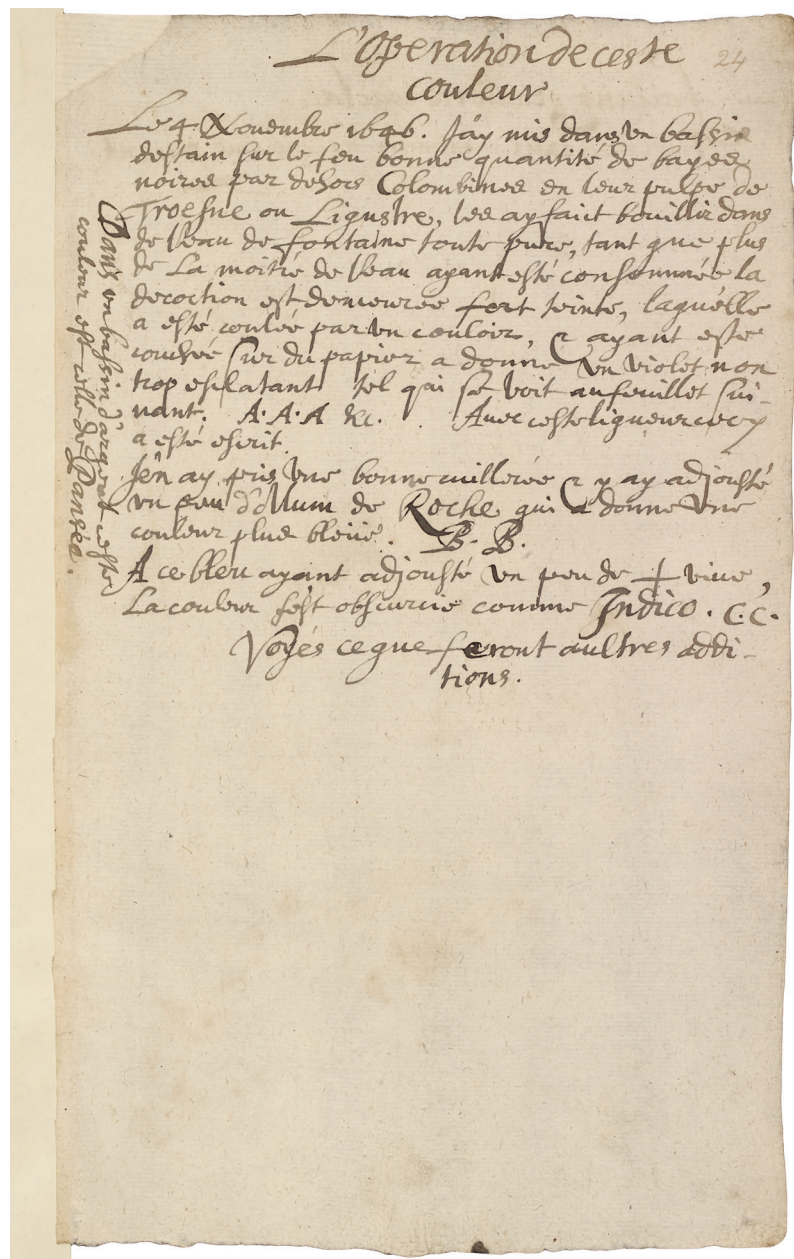 L'Operation de ceste
24
couleur
Le 4 Nouembre 1646. J'ay mis dans vn bassin
d'estain sur le feu bonne quantité de bayes
noires par dehors Colombines en leur pulpe de
Troesne ou Ligustre, les ay faict bouillir dans
de l'eau de fontaine toute pure, tant que plus
de La moitié de l'eau ayant esté consommée la
decoction est demeurée fort teinte, laquelle
a esté coulée par vn couloir, & ayant esté
couchée sur du papier a donné vn violet non
trop esclatant tel qui se voit au feuillet sui-
uant. A. A. A &c. Auec ceste liqueur cecy
a esté escrit.
J'en ay pris vne bonne cuillerée & y ay adjousté
vn peu d'Allum de Roche qui a donné vne
couleur plus bleüe. B. B.
A ce bleu ayant adjousté vn peu de + viue,
La couleur s'est obscurcie comme Indico. C. C.
Voyés ce que feront aultres addi-
tions.
Dans vn bassin d'argent ceste
couleur est celle de Pansée.